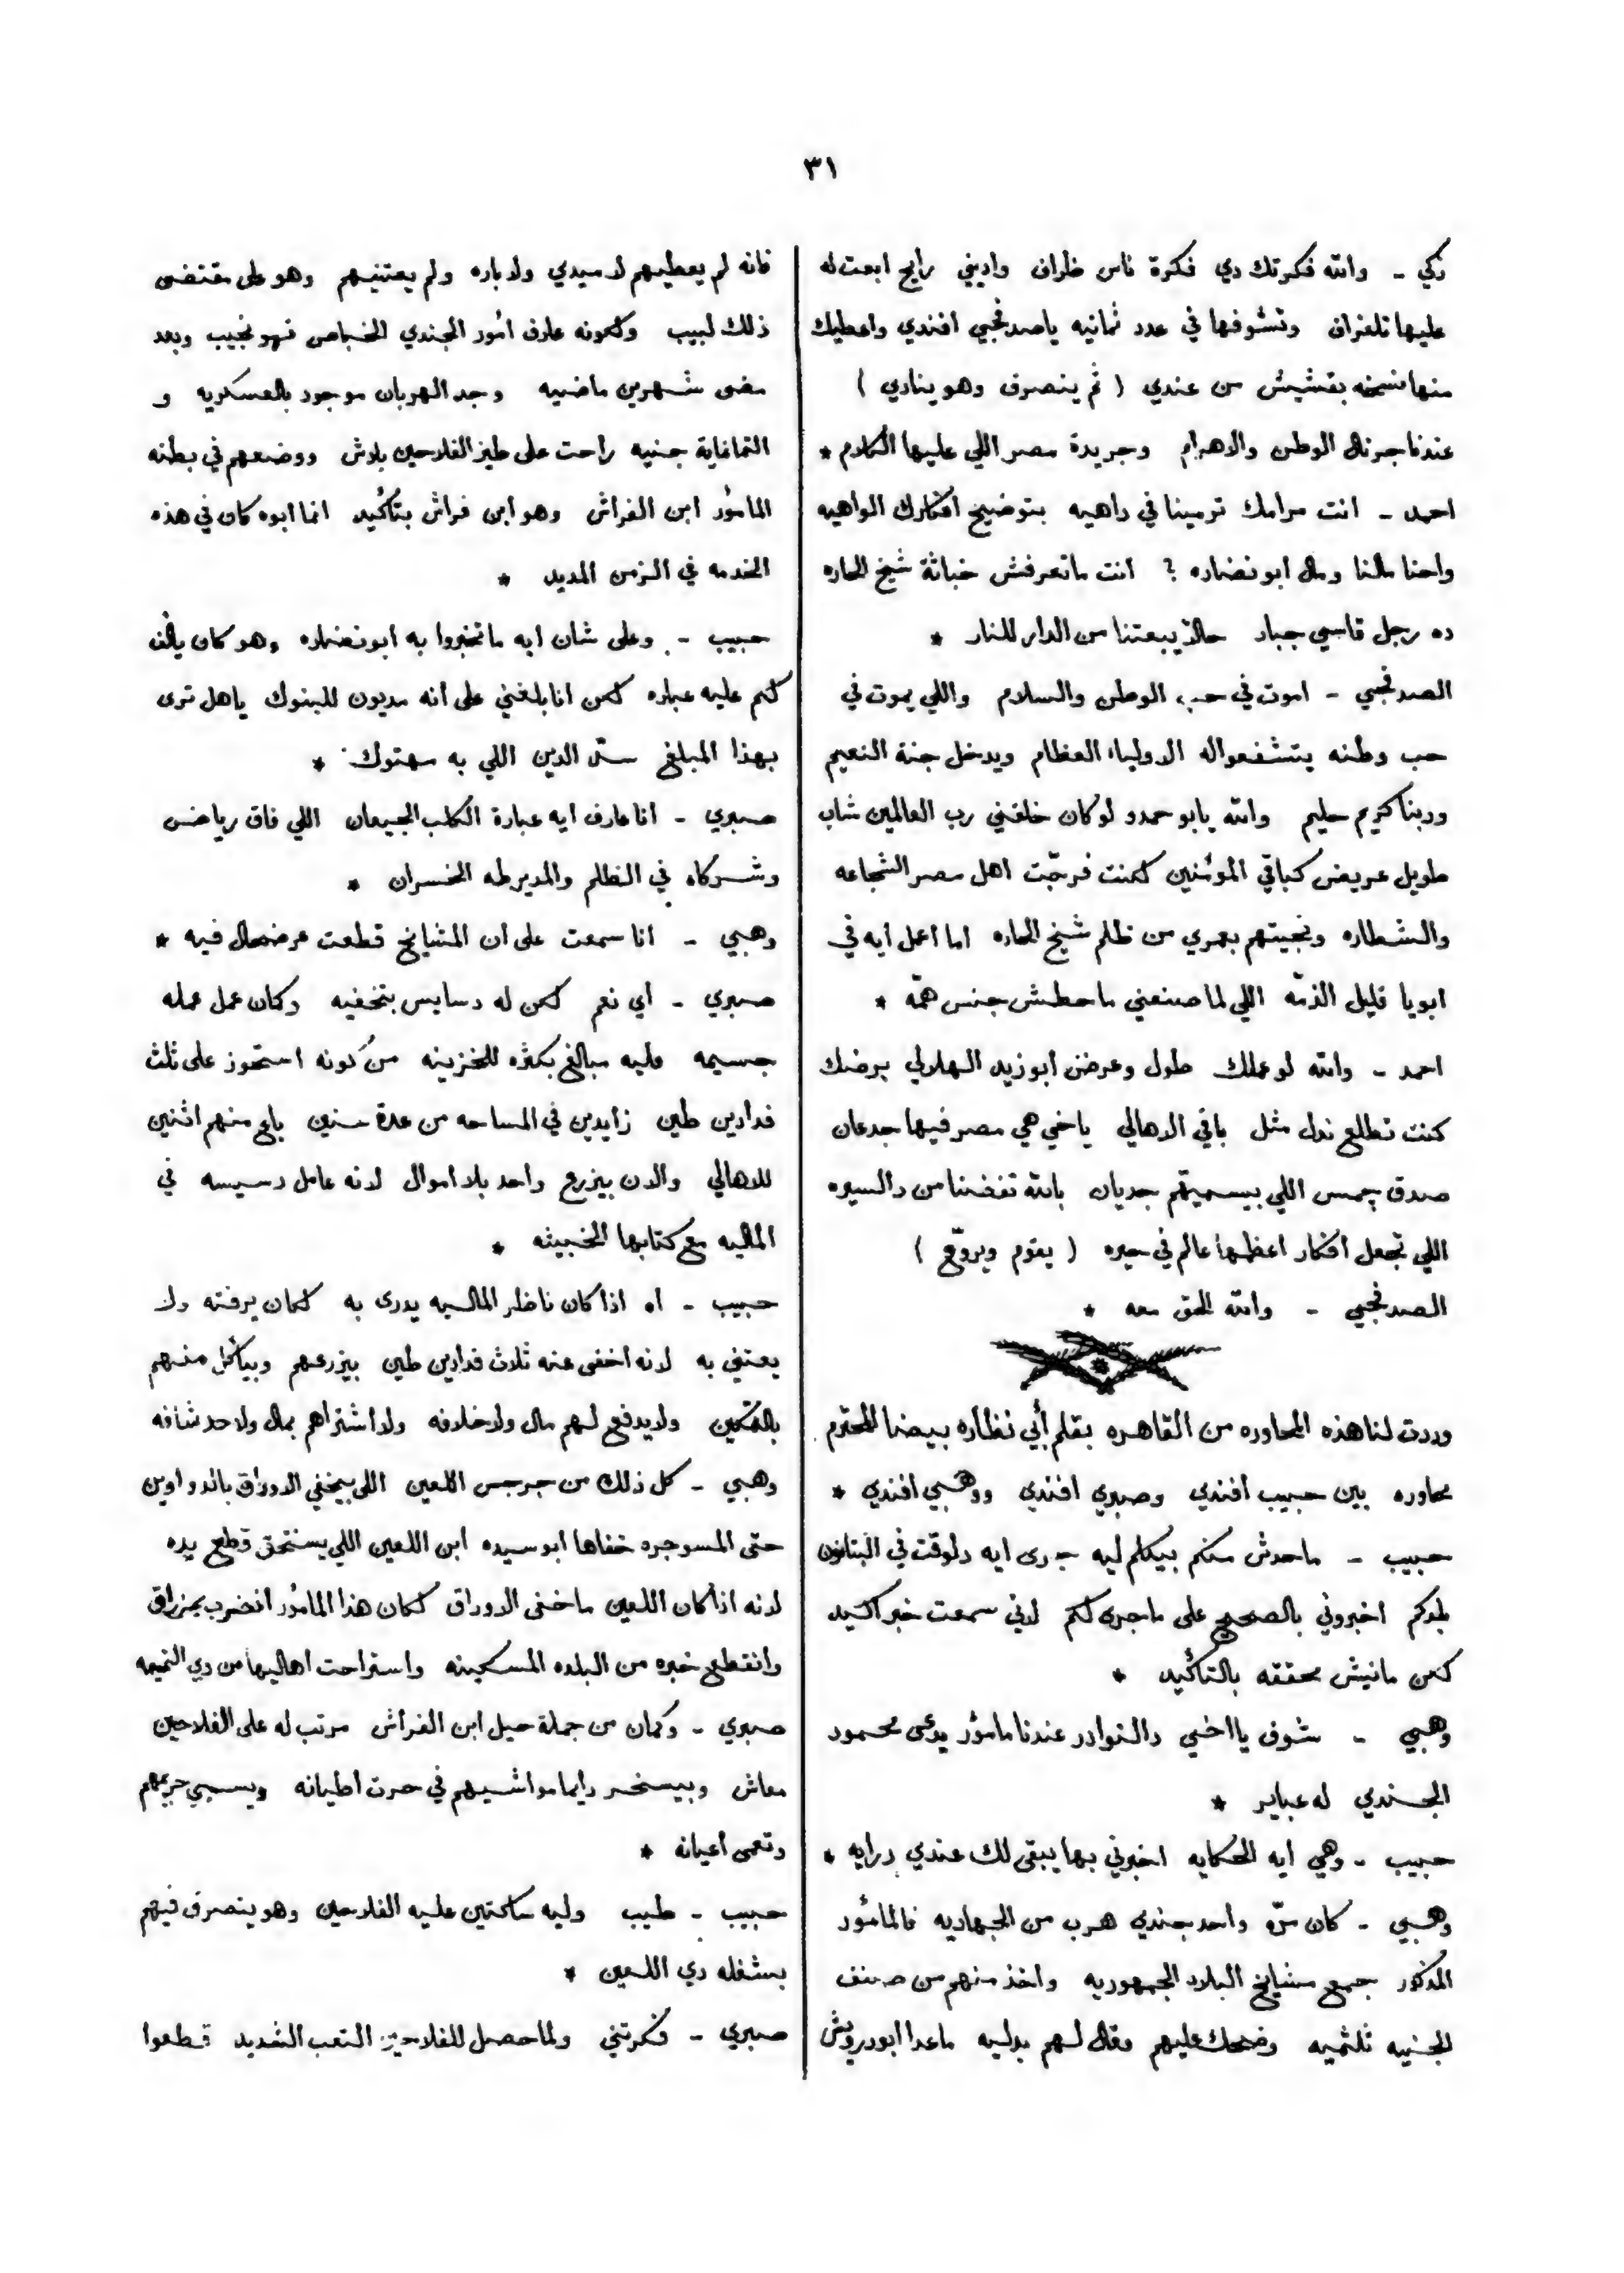 ٣١
زكي - والله فكرتك دي فكرة ناس ظراف واديني رايح ابعت له
عليها تلغراف وتشوفها في عدد ثمانيه ياصدفجي افندي واعطيك
منها نسخه بقشيش من عندي ( ثم ينصرف وهو ينادي )
عندنا جرنال الوطن والاهرام وجريدة مصر اللي عليها الكلام *
احمد - انت مرامك ترمينا في داهيه بتوضيح افكارك الواهيه
واحنا مالنا ومال ابو نضاره ? انت ماتعرفش خباثة شيخ الحاره
ده رجل قاسي جبار حالاً يبعتنا من الدار للنار *
الصدفجي - اموت في حب الوطن والسلام واللي يموت في
حب وطنه يتشفعواله الاولياء العظام ويدخل جنة النعيم
وربنا كريم حليم والله يابو حمدو لو كان خلقني رب العالمين شاب
طويل عريض كباقي المؤمنين لكنت فرجّت اهل مصر الشجاعه
والشطاره ونجيتهم بعمري من ظلم شيخ الحاره اما اعمل ايه في
ابويا قليل الذمّه اللي لما صنعني ماحطش جنس همّه *
احمد - والله لو عملك طول وعرض ابو زيد الهلالي برضك
كنت تطلع ندل مثل باقي الاهالي ياخي هي مصر فيها جدعان
صدق جمس اللي بيسميتهم جديان بالله تفضنا من دالسيره
اللي تجعل افكار اعظمها عالم في حيره ( يقوم ويروّح )
الصدفجي - والله الحق معه *
وردت لنا هذه المحاوره من القاهره بقلم أبي نظاره بيضا المحترم
محاوره بين حبيب افندي وصبري افندي ووهبي افندي *
حبيب - ماحدش منكم بيكلم ليه جرى ايه دلوقت في البتانون
بلدكم اخبروني بالصحيح على ماجرى لكم لاني سمعت خبر اكيد
لكن مانيش محققه بالتاكيد *
وهبي - شوف يااخي دالنوادر عندنا مامور يدعى محمود
الجندي له عباير *
حبيب - وهي ايه الحكايه اخبرني بها يبقى لك عندي درايه *
وهبي - كان مرّه واحد جندي هرب من الجهاديه فالمأمور
المذكور جمع مشايخ البلاد الجمهوريه واخذ منهم من صنف
الجنيه ثلثميه وضحك عليهم وقال لهم بدليه ماعدا ابو درويش
فانه لم يعطيهم لا ميدي ولا باره ولم يعتنيهم وهو على مقتضى
ذلك لبيب ولكونه عارف امور الجندي الخباص فهو نجيب وبعد
مضى شهرين ماضيه وجد الهربان موجود بالعسكريه و
التماغاية جنيه راحت على طيز الفلاحين بلاش ووضعهم في بطنه
المأمور ابن الفراش وهو ابن فراش بتأكيد انما ابوه كان في هذه
الخدمه في الزمن المديد *
حبيب - وعلى شان ايه ماتخبروا به ابو نضاره وهو كان يالف
لكم عليه عباره لكن انا بلغني على انه مديون للبنوك ياهل ترى
بهذا المبلغ سدّ الدين اللي به مهتوك *
صبري - انا عارف ايه عبارة الكلب الجيعان اللي فاق رياض
وشركاه في الظلم والمديرطه الخسران *
وهبي - انا سمعت على ان المشايخ قطعت عرضحال فيه *
صبري - اي نعم لكن له دسايس بتخفيه وكان عمل عمله
جسيمه وليه مبالغ بكثره للخزينه من كونه استحوز على ثلث
فدادين طين زايدين في المساحه من عدة سنين باع منهم اثنين
للاهالي والان بيزرع واحد بلا اموال لانه عامل دسيسه في
الماليه مع كتابها الخبيثه *
حبيب - اه اذا كان ناظر الماليه يدرى به لكان يرفته ولا
يعتني به لانه اخفى عنه ثلاث فدادين طين بيزرعهم وبيأكل منهم
بالتمكين ولا يدفع لهم مال ولا خلافه ولا اشتراهم بمال ولا حد شافه
وهبي - كل ذلك من جرجس اللعين اللي بيخفي الاوراق بالدواوين
حتى المسوجره خفاها ابو سيده ابن اللعين اللي يستحق قطع يده
لانه اذا كان اللعين ماخفى الاوراق لكان هذا المأمور انضرب بمزراق
وانقطع خبره من البلده المسكينه واستراحت اهاليها من دي النميمه
صبري - وكمان من جملة حيل ابن الفراش مرتب له على الفلاحين
معاش وبيسخر دايما مواشيهم في حرت اطيانه ويسبي حريمهم
وتعمى اعيانه *
حبيب - طيب وليه ساكتين عليه الفلاحين وهو يتصرف فيهم
بشغله دي اللعين *
صبري - فكرتني ولما حصل للفلاحين التعب الشديد قطعوا